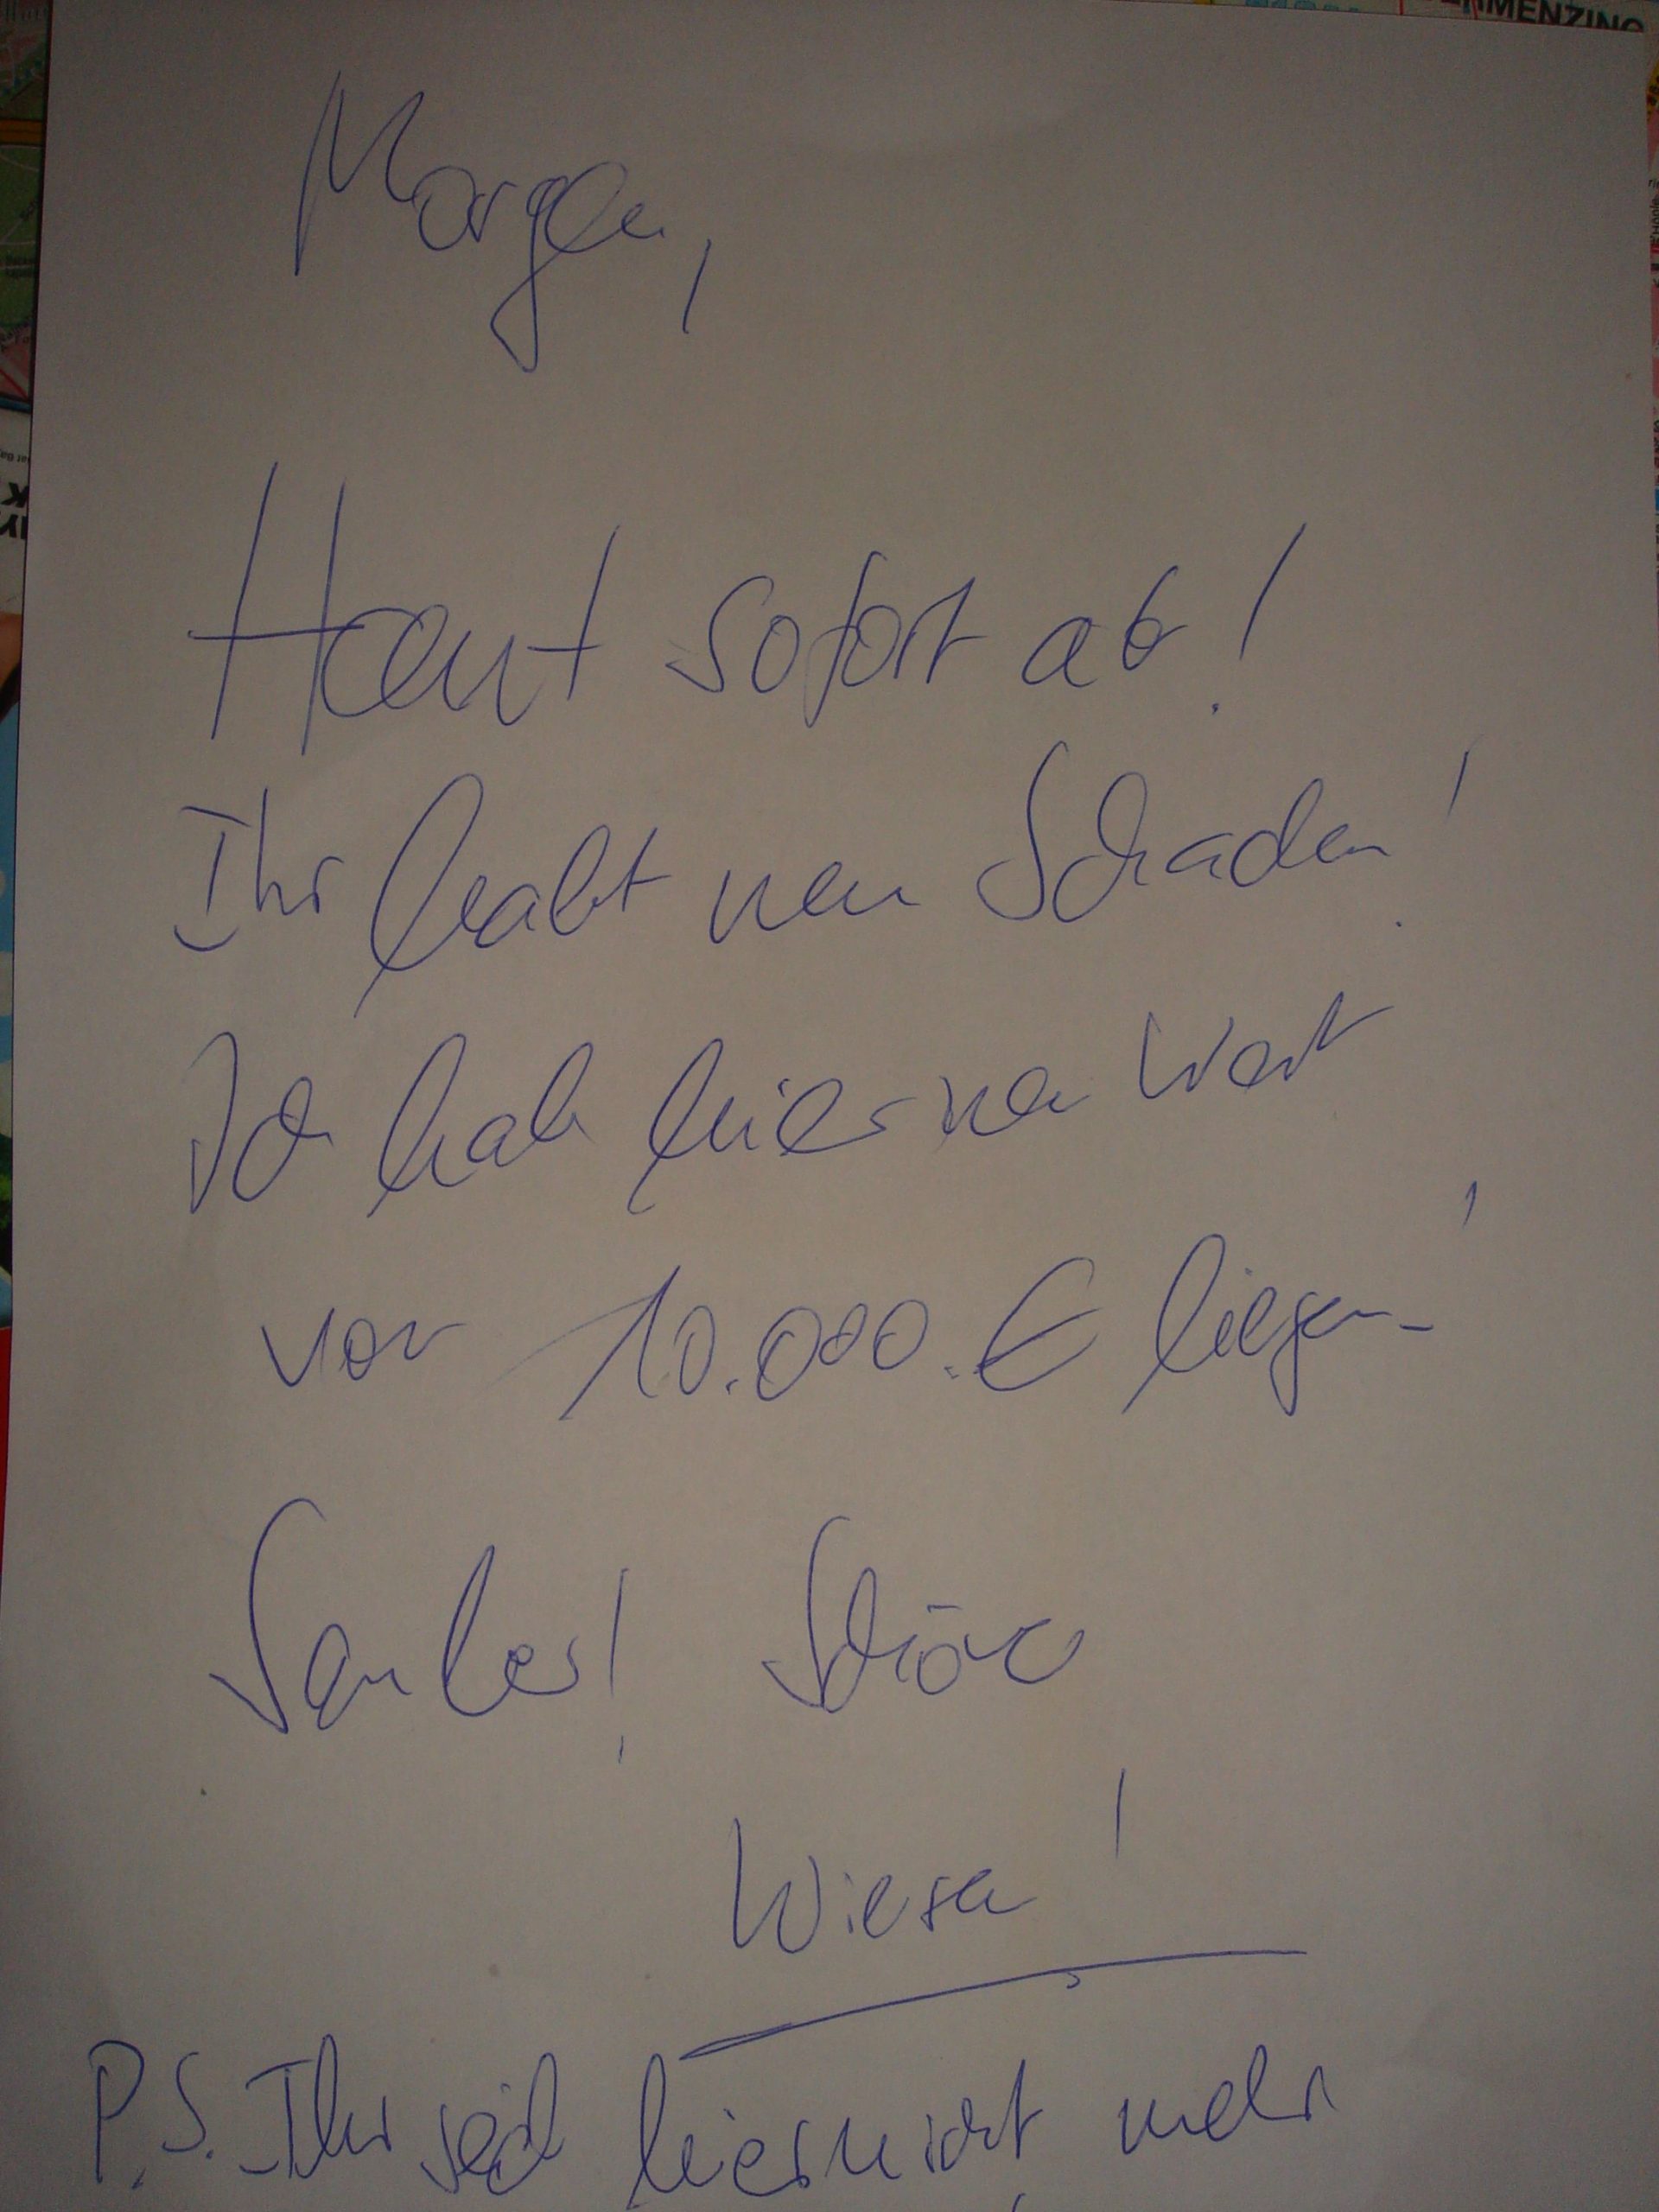 MENZING
Morgen,
Haut sofort ab!
Ihr habt nen Schaden!
Ich hab hier nen Wert
von 10.000.€ liegen!
Sauber! Schöne
Wiesn!
P.S. Ihr seid hier nicht mehr